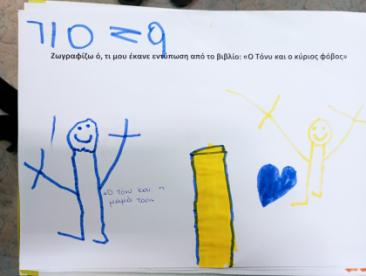 Ζωγραφίζω ό, τι μου έκανε εντύπωση από το βιβλίο: «Ο Τόνυ και ο κύριος φόβος»
«Ο Τόνυ και η
μαμά του»